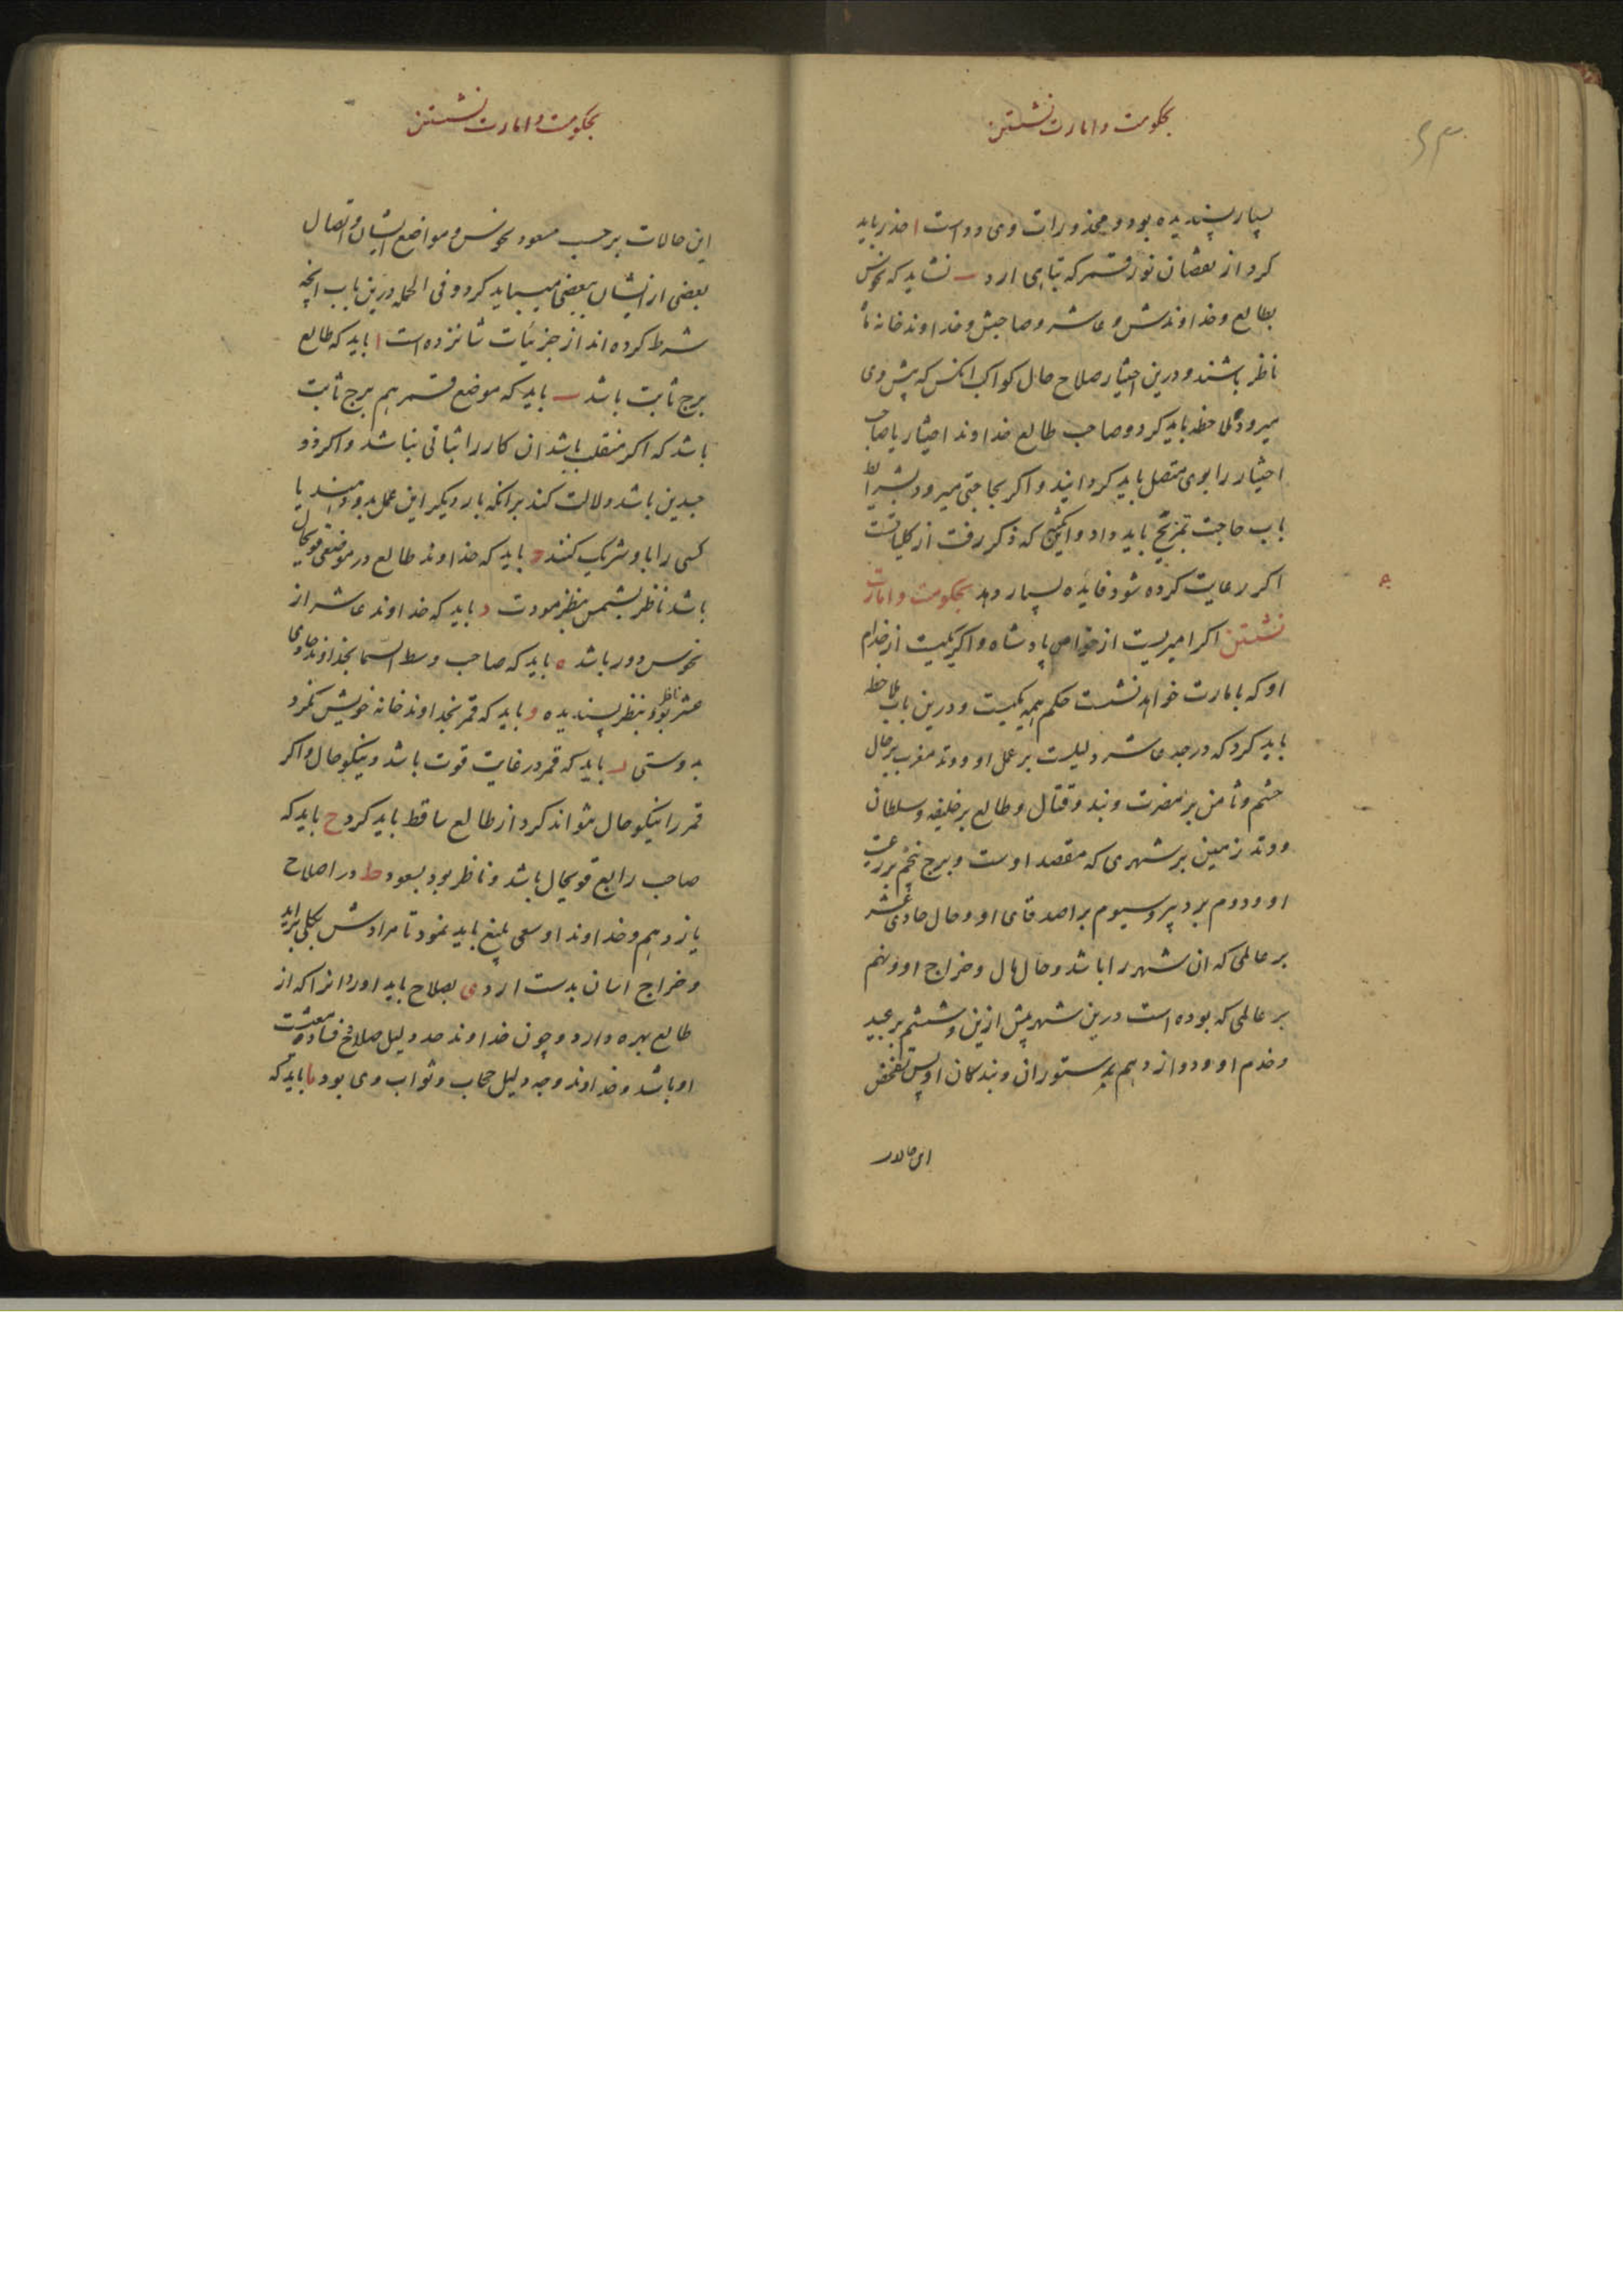 بحکومت و امارت نشستن
۶۳
بسیار پسندیده بود و محذورات وی دو است ا حذر باید
کرد از نقصان نور قمر که تباهی ارد ب نشاید که نحوس
بطالع و خداوندش و عاشر و صاحبش و خداوند خانه ماه
ناظر باشند و درین اختیار صلاح حال کواکب انکس که پیش وی
میرود ملاحظه باید کرد و صاحب طالع خداوند اختیار یا صاحب
اختیار را بوی متصل باید کردانید و اکر بحاجتی میرود بشرایط
باب حاجت تمزیج باید داد و که ذکر رفت از کلیاتست
اکر رعایت کرده شود فایده بسیار دهد بحکومت و امارت
نشستن اکر امیریست از خواص پادشاه و اکر یکیست از خدام
او که بامارت خواهد نشست حکم همه یکیست و درین باب ملاحظه
باید کرد که درجه عاشر دلیلست بر عمل او و وتد مغرب بر حال
خشم و ثامن بر مضرت و بند و قتال و طالع بر خلیفه و سلطان
و وتد زمین بر شهری که مقصد اوست و برج پنجم بر رعیت
او و دوم بر دبیر و سیوم بر اصدقای او و حال حادی عشر
بر عالمی که ان شهر را باشد و حال مال و خراج او و نهم
بر عالمی که بوده است درین شهر پیش ازین و ششم بر عبید
و خدم او و دوازدهم بر ستوران و بندکان او پس تفحص
این حالات
بحکومت و امارت نشستن
این حالات برحسب سعود و نحوس و مواضع ایشان و اتصال
بعضی از ایشان ببعضی میباید کرد و فی الجمله درین باب انچه
شرط کرده اند از جزئیات شانزده است ا باید که طالع
برج ثابت باشد ب باید که موضع قمر هم برج ثابت
باشد که اکر منقلب باشد ان کار را ثباتی نباشد و اکر ذو
جسدین باشد دلالت کند برانکه بار دیکر این عمل بدو دهند یا
کسی را با او شریک کنند ج باید که خداوند طالع در موضعی قویحال
باشد ناظر بشمس بنظر مودت د باید که خداوند عاشر از
نحوس دور باشد ه باید که صاحب وسط السما بخداوند حادی
عشر ناظر بود بنظر پسندیده و باید که قمر بخداوند خانه خویش نکرد
بدوستی ز باید که قمر در غایت قوت باشد و نیکو حال و اکر
قمر را نیکو حال نتواند کرد از طالع ساقط باید کرد ح باید که
صاحب رابع قویحال باشد و ناظر بود بسعود ط در اصلاح
یازدهم و خداوند او سعی بلیغ باید نمود تا مرادش بکلی براید
و خراج اسان بدست ارد ی بصلاح باید اورد انرا که از
طالع بهره دارد و چون خداوند حد دلیل صلاح و فساد معیشت
او باشد و خداوند وجه دلیل حجاب و نواب وی بود یا باید که